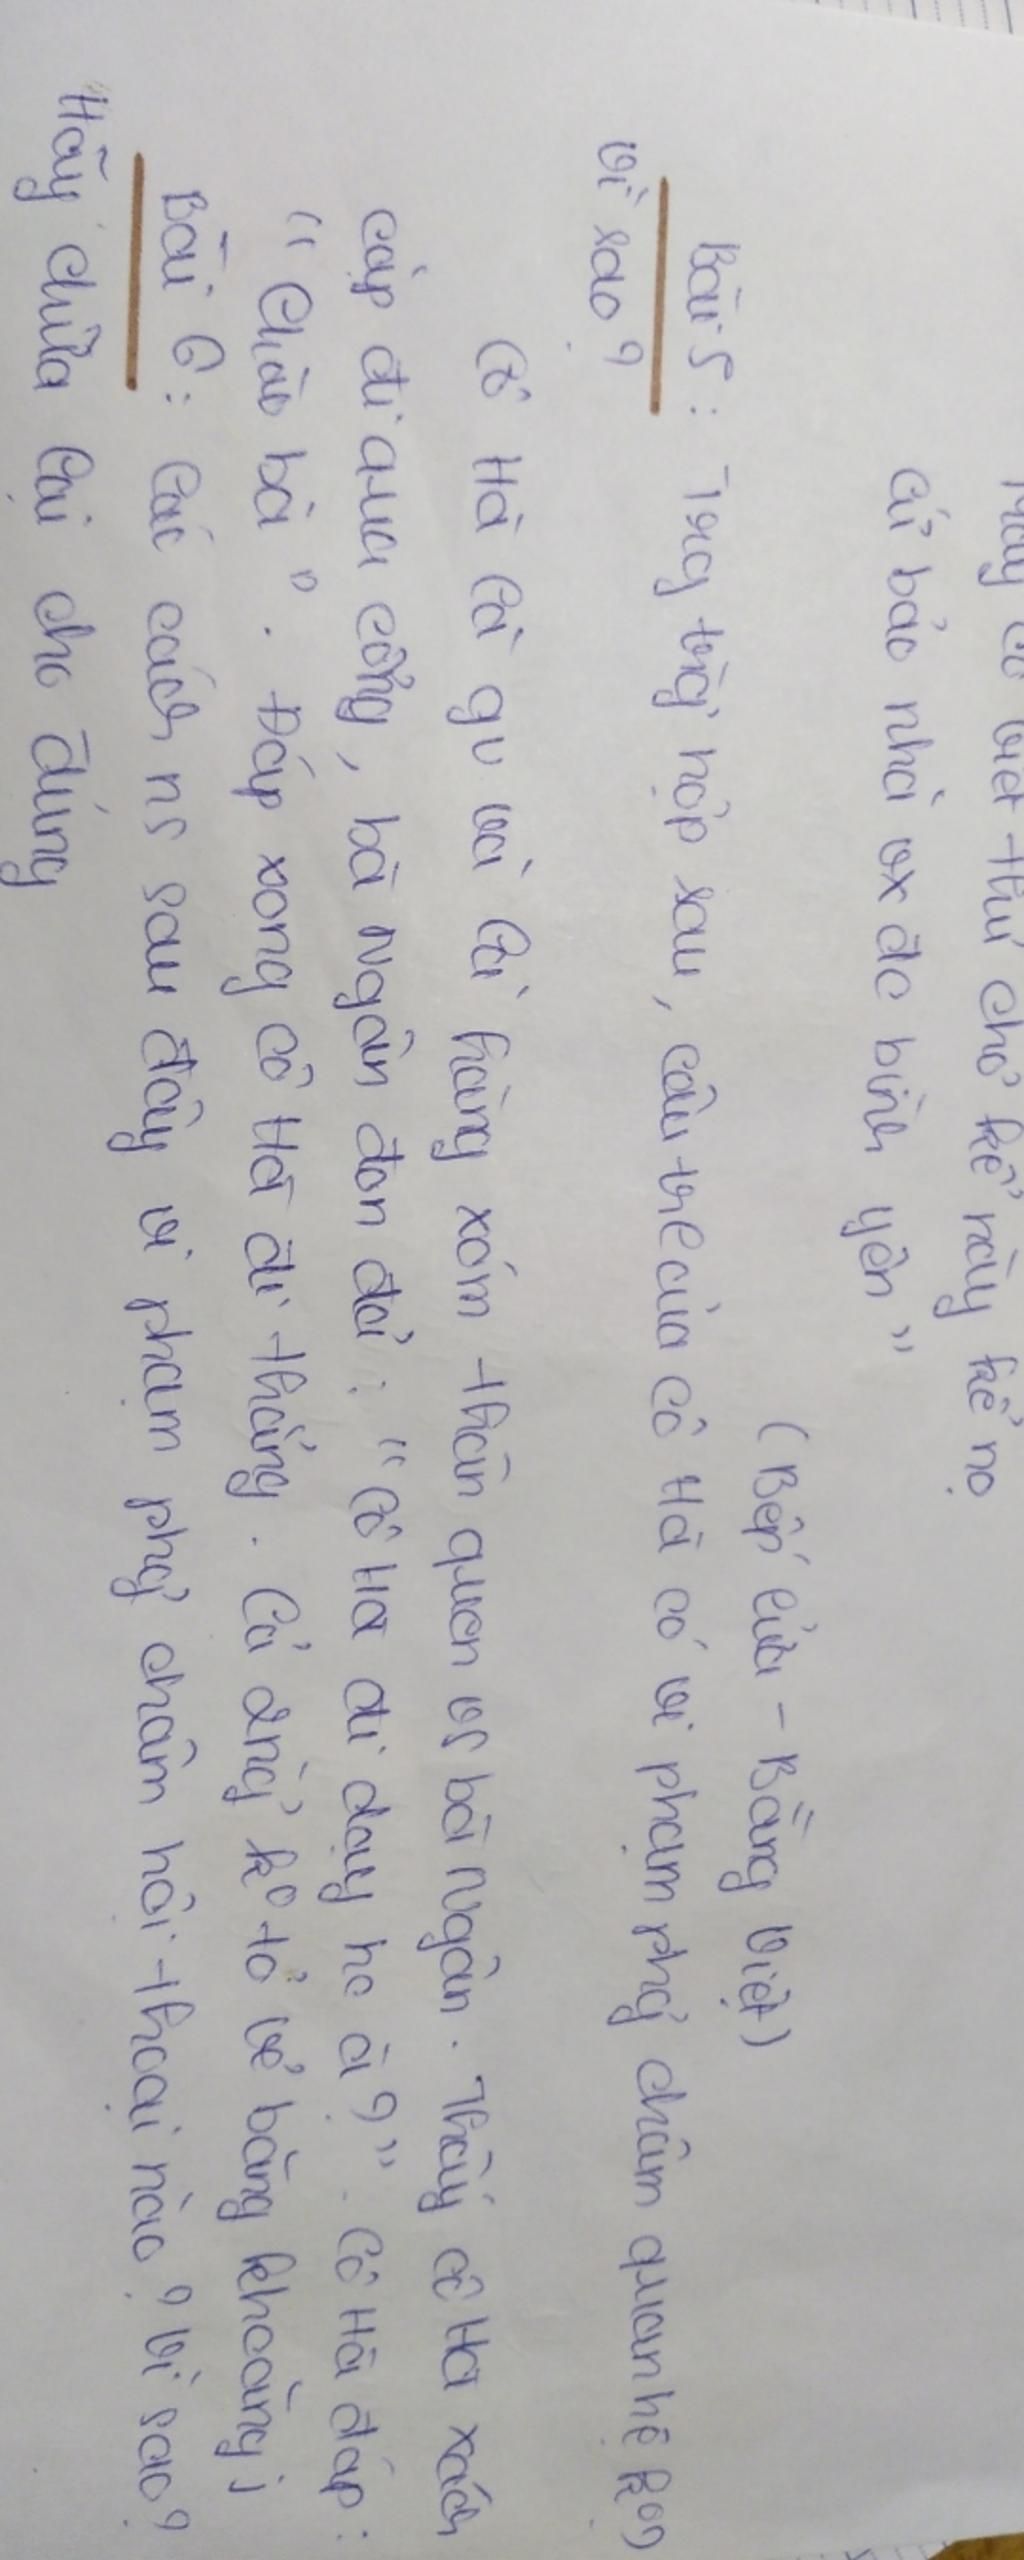 cứ bảo nhà vx đc bình yên"
(Bếp lửa - Bằng Việt)
Bài 5: Trog trg` hợp sau, câu trl của cô Hà có vi phạm phg châm quan hệ kog?
Vì sao?
Cô Hà là gv và là hàng xóm thân quen vs bà Ngân. Thấy cô Hà xách
cặp đi qua cổng, bà Ngân đon đả: "Cô Hà đi dạy hc à?". Cô Hà đáp:
"Chào bà". Đáp xong cô Hà đi thẳng.
Bài 6: Các cách ns sau đây vi phạm phg châm hội thoại nào? Vì sao?
Hãy chữa lại cho đúng